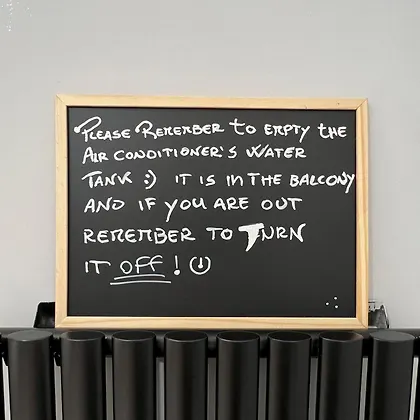 PLEASE REMEMBER TO EMPTY THE
AIR CONDITIONER'S WATER
TANK :) IT IS IN THE BALCONY
AND IF YOU ARE OUT
REMEMBER TO TURN
IT OFF !